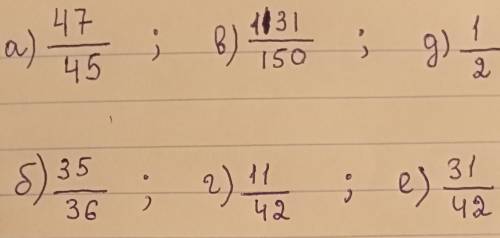 а) 47/45 ; в) 131/150 ; д) 1/2
б) 35/36 ; г) 11/42 ; е) 31/42